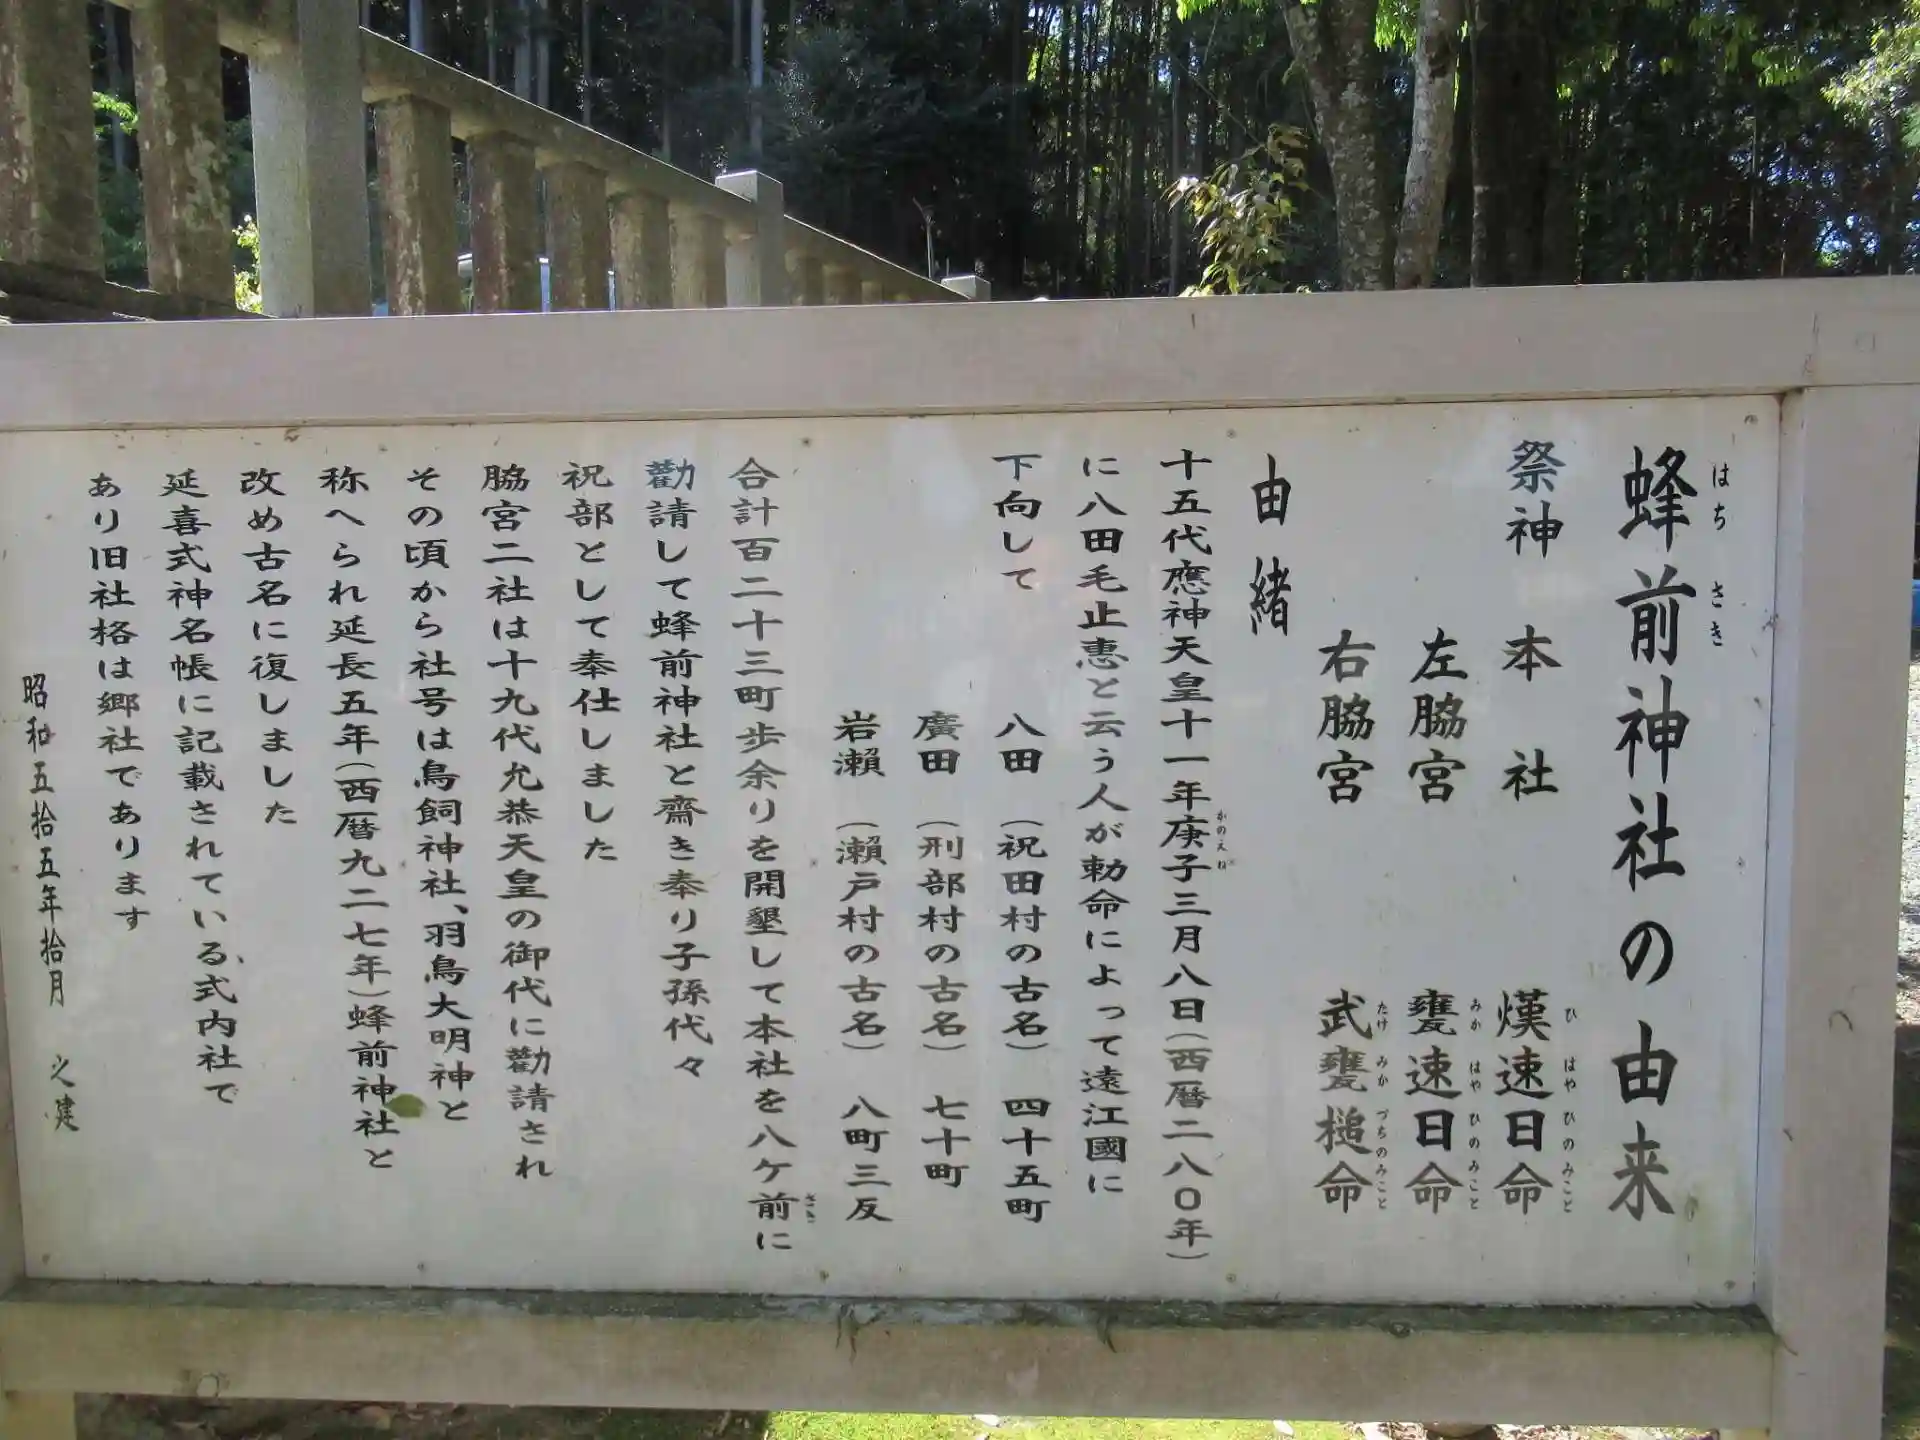 蜂前神社の由来
はち さき
祭神 本社 熯速日命
ひ はや ひの みこと
左脇宮 甕速日命
みか はや ひの みこと
右脇宮 武甕槌命
たけ みか づちのみこと
由緒
十五代應神天皇十一年庚子三月八日(西暦二八〇年)
かのえね
に八田毛止惠と云う人が勅命によって遠江國に
下向して 八田 (祝田村の古名) 四十五町
廣田 (刑部村の古名) 七十町
岩瀬 (瀬戸村の古名) 八町三反
合計百二十三町歩余りを開墾して本社を八ケ前に
さき
勸請して蜂前神社と齋き奉り子孫代々
祝部として奉仕しました
脇宮二社は十九代允恭天皇の御代に勸請され
その頃から社号は鳥飼神社、羽鳥大明神と
称へられ延長五年(西暦九二七年)蜂前神社と
改め古名に復しました
延喜式神名帳に記載されている、式内社で
あり旧社格は郷社であります
昭和五拾五年拾月 之建